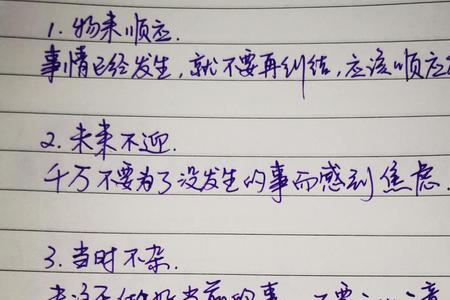 1. 物来顺应.
事情已经发生,就不要再纠结,应该顺应
2. 未来不迎.
千万不要为了没发生的事而感到焦虑.
3. 当时不杂.